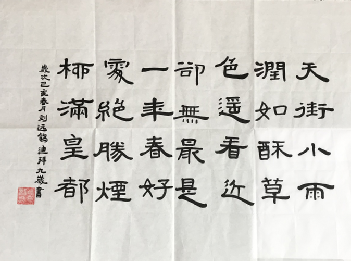 天街小雨
潤如酥草
色遥看近
卻無最是
一年春好
處絕勝煙
柳滿皇都
歲次己亥春月刘九歲書